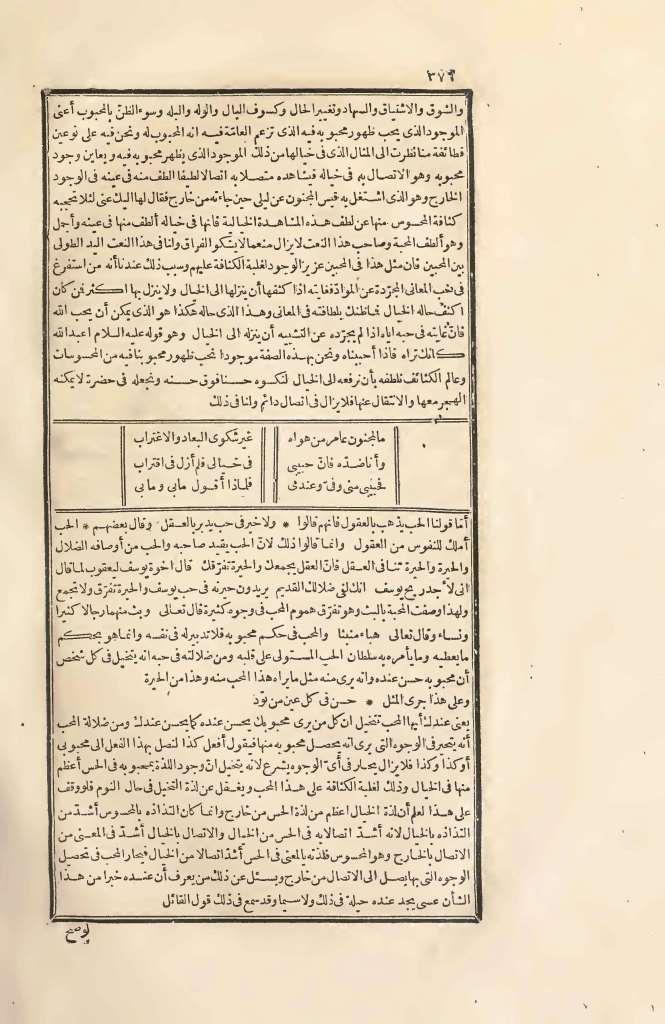 ٣٧٦
والشوق والاشتياق والسهاد وتغيير الحال وكسوف البال والوله والبله وسوء الظن بالمحبوب أعنى
الموجود الذى يحب ظهور محبوبه فيه الذى تزعم العامّة فيه انه المحبوب له ونحن فيه على نوعين
فطائفة منا نظرت الى المثال الذى فى خيالها من ذلك الموجود الذى يظهر محبوبه فيه ويعاين وجود
محبوبه وهو الاتصال به فى خياله فيشاهده متصلا به اتصالا لطيفا ألطف منه فى عينه فى الوجود
الخارج وهو الذى اشتغل به قيس المجنون عن ليلى حين جاءته من خارج فقال لها اليك عنى لئلا تحجبه
كثافة المحسوس منها عن لطف هذه المشاهدة الخيالية فانها فى خياله ألطف منها فى عينه وأجمل
وهو ألطف المحبة وصاحب هذا النعت لا يزال منعما لا يشكو الفراق ولنا فى هذا النعت اليد الطولى
بين المحبين فان مثل هذا فى المحبين عزيز الوجود لغلبة الكثافة عليهم وسبب ذلك عندنا أنه من استفرغ
فى حب المعانى المجرّدة عن الموادّ فغايته اذا كثفها أن ينزلها الى الخيال ولا ينزل بها أكثر فمن كان
أكثف حاله الخيال فما ظنك بلطافته فى المعانى وهذا الذى حاله هكذا هو الذى يمكن أن يحب الله
فانّ غايته فى حبه اياه اذا لم يجرّده عن التشبيه أن ينزله الى الخيال وهو قوله عليه السلام اعبد الله
كانك تراه فاذا أحببناه ونحن بهذه الصفة موجودا نحب ظهور محبوبنا فيه من المحسوسات
وعالم الكثائف نلطفه بأن نرفعه الى الخيال لنكسوه حسنا فوق حسنه ونجعله فى حضرة لا يمكنه
الهجر معها والانتقال عنها فلا يزال فى اتصال دائم ولنا فى ذلك
ما لمجنون عامر من هواه غير شكوى البعاد والاغتراب
وأنا ضدّه فانّ حبيبى فى خيالى فلم أزل فى اقتراب
فحبيبى منى وفىّ وعندى فلماذا أقول ما بى وما بى
أما قولنا الحب يذهب بالعقول فانهم قالوا * ولا خير فى حب يدبر بالعقل وقال بعضهم * الحب
أملك للنفوس من العقول وانما قالوا ذلك لانّ الحب يقيد صاحبه والحب من أوصافه الضلال
والحيرة والحيرة تنافى العقل فانّ العقل يجمعك والحيرة تفرّقك قال اخوة يوسف ليعقوب لما قال
انى لأجد ريح يوسف انك لفى ضلالك القديم يريدون حيرته فى حب يوسف والحيرة تفرّق ولا تجمع
ولهذا وصفت المحبة بالبث وهو تفرّق هموم المحب فى وجوه كثيرة قال تعالى وبث منهما رجالا كثيرا
ونساء وقال تعالى هباء منبثا والمحب فى حكم محبوبه فلا تدبير له فى نفسه وانما هو بحكم
ما يعطيه وما يأمره به سلطان الحب المستولى على قلبه ومن ضلالته فى حبه انه يتخيل فى كل شخص
أن محبوبه حسن عنده وانه يرى منه مثل ما يراه هذا المحب منه وهذا من الحيرة
وعلى هذا جرى المثل * حسن فى كل عين من تودّ
يعنى عندك أيها المحب تتخيل ان كل من يرى محبوبك يحسن عنده كما يحسن عندك ومن ضلالة المحب
أنه يتحير فى الوجوه التى يرى انه يحصل محبوبه منها فيقول أفعل كذا لنصل بهذا الفعل الى محبوبى
أو كذا وكذا فلا يزال يحار فى أىّ الوجوه يشرع لانه يتخيل انّ وجود اللذة بمحبوبه فى الحس أعظم
منها فى الخيال وذلك لغلبة الكثافة على هذا المحب ويغفل عن لذة التخيل فى حال النوم فلو وقف
على هذا لعلم أن لذة الخيال اعظم من لذة الحس من خارج وانما كان التذاذه بالمحسوس أشدّ من
التذاذه بالخيال لانه أشدّ اتصالا به فى الحس من الخيال والاتصال بالخيال أشدّ فى المعنى من
الاتصال بالخارج وهو المحسوس فلذته بالمعنى فى الحس أشدّ اتصالا من الخيال فيحار المحب فى تحصيل
الوجوه التى بها يصل الى الاتصال من خارج ويسئل عن ذلك من يعرف أن عنده خبرا من هذا
الشأن عسى يجد عنده حيلة فى ذلك ولا سيما وقد سمع فى ذلك قول القائل
لو صح